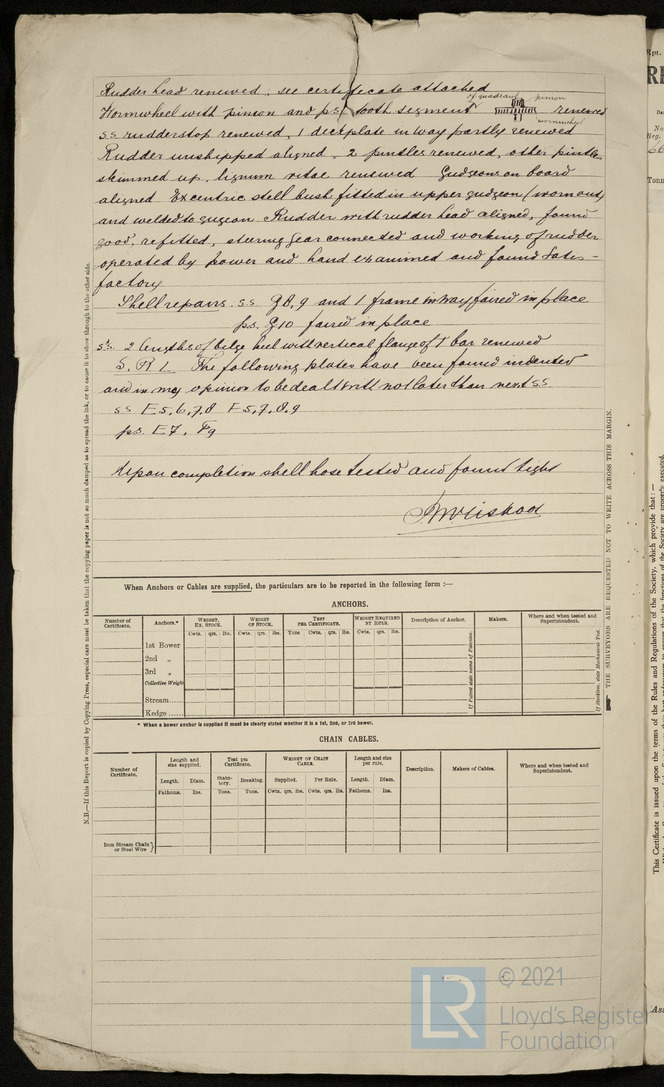 Rudder head renewed, see certificate attached
of quadrant pinion
Wormwheel with pinion and p.s. tooth segment renewed
wormwheel
s.s. rudderstop renewed, 1 deckplate in way partly renewed
Rudder unshipped aligned, 2 pintles renewed, other pintles
skimmed up, lignum vitae renewed Gudgeons on board
aligned Excentric stell bush fitted in upper gudgeon (worn out)
and welded to gugeon Rudder with rudder head aligned, found
good, refitted, steering gear connected and working of rudder
operated by power and hand examined and found satis-
factory
Shell repairs. s.s. G 8, 9 and 1 frame in way faired in place
p.s. G10 faired in place
s.s. 2 lengths of bilge keel with vertical flange of T bar renewed
S. R 1. The following plates have been found indented
and in my opinion to be dealt with not later than next s.s.
s.s E 5, 6, 7, 8 F 5, 7, 8, 9
p.s. E7, F9
Upon completion shell hose tested and found tight
When Anchors or Cables are supplied, the particulars are to be reported in the following form :—
ANCHORS.
Number of Certificate. Anchors.* WEIGHT, EX. STOCK. WEIGHT OF STOCK. TEST PER CERTIFICATE. WEIGHT REQUIRED BY RULE. Description of Anchor. Makers. Where and when tested and Superintendent.
Cwts. qrs. lbs. Cwts. qrs. lbs. Tons Cwts. qrs. lbs. Cwts. qrs. lbs.
1st Bower
2nd „
3rd „
Collective Weight
Stream......
Kedge ......
If Patent state name of Patentee.
* When a bower anchor is supplied it must be clearly stated whether it is a 1st, 2nd, or 3rd bower.
CHAIN CABLES.
Number of Certificate. Length and size supplied. Test per Certificate. WEIGHT OF CHAIN CABLE. Length and size per rule. Description. Makers of Cables. Where and when tested and Superintendent.
Length. Diam. Statutory. Breaking. Supplied. Per Rule. Length. Diam.
Fathoms. Ins. Tons. Tons. Cwts. qrs. lbs. Cwts. qrs. lbs. Fathoms. Ins.
Iron Stream Chain or Steel Wire }
N.B.—If this Report is copied by Copying Press, especial care must be taken that the copying paper is not so much damped as to spread the ink, or to cause it to show through to the other side.
THE SURVEYORS ARE REQUESTED NOT TO WRITE ACROSS THIS MARGIN.
Rpt.
No
Reg.
Tonn
This Certificate is issued upon the terms of the Rules and Regulations of the Society, which provide that :—
LR
© 2021
Lloyd's Register
Foundation